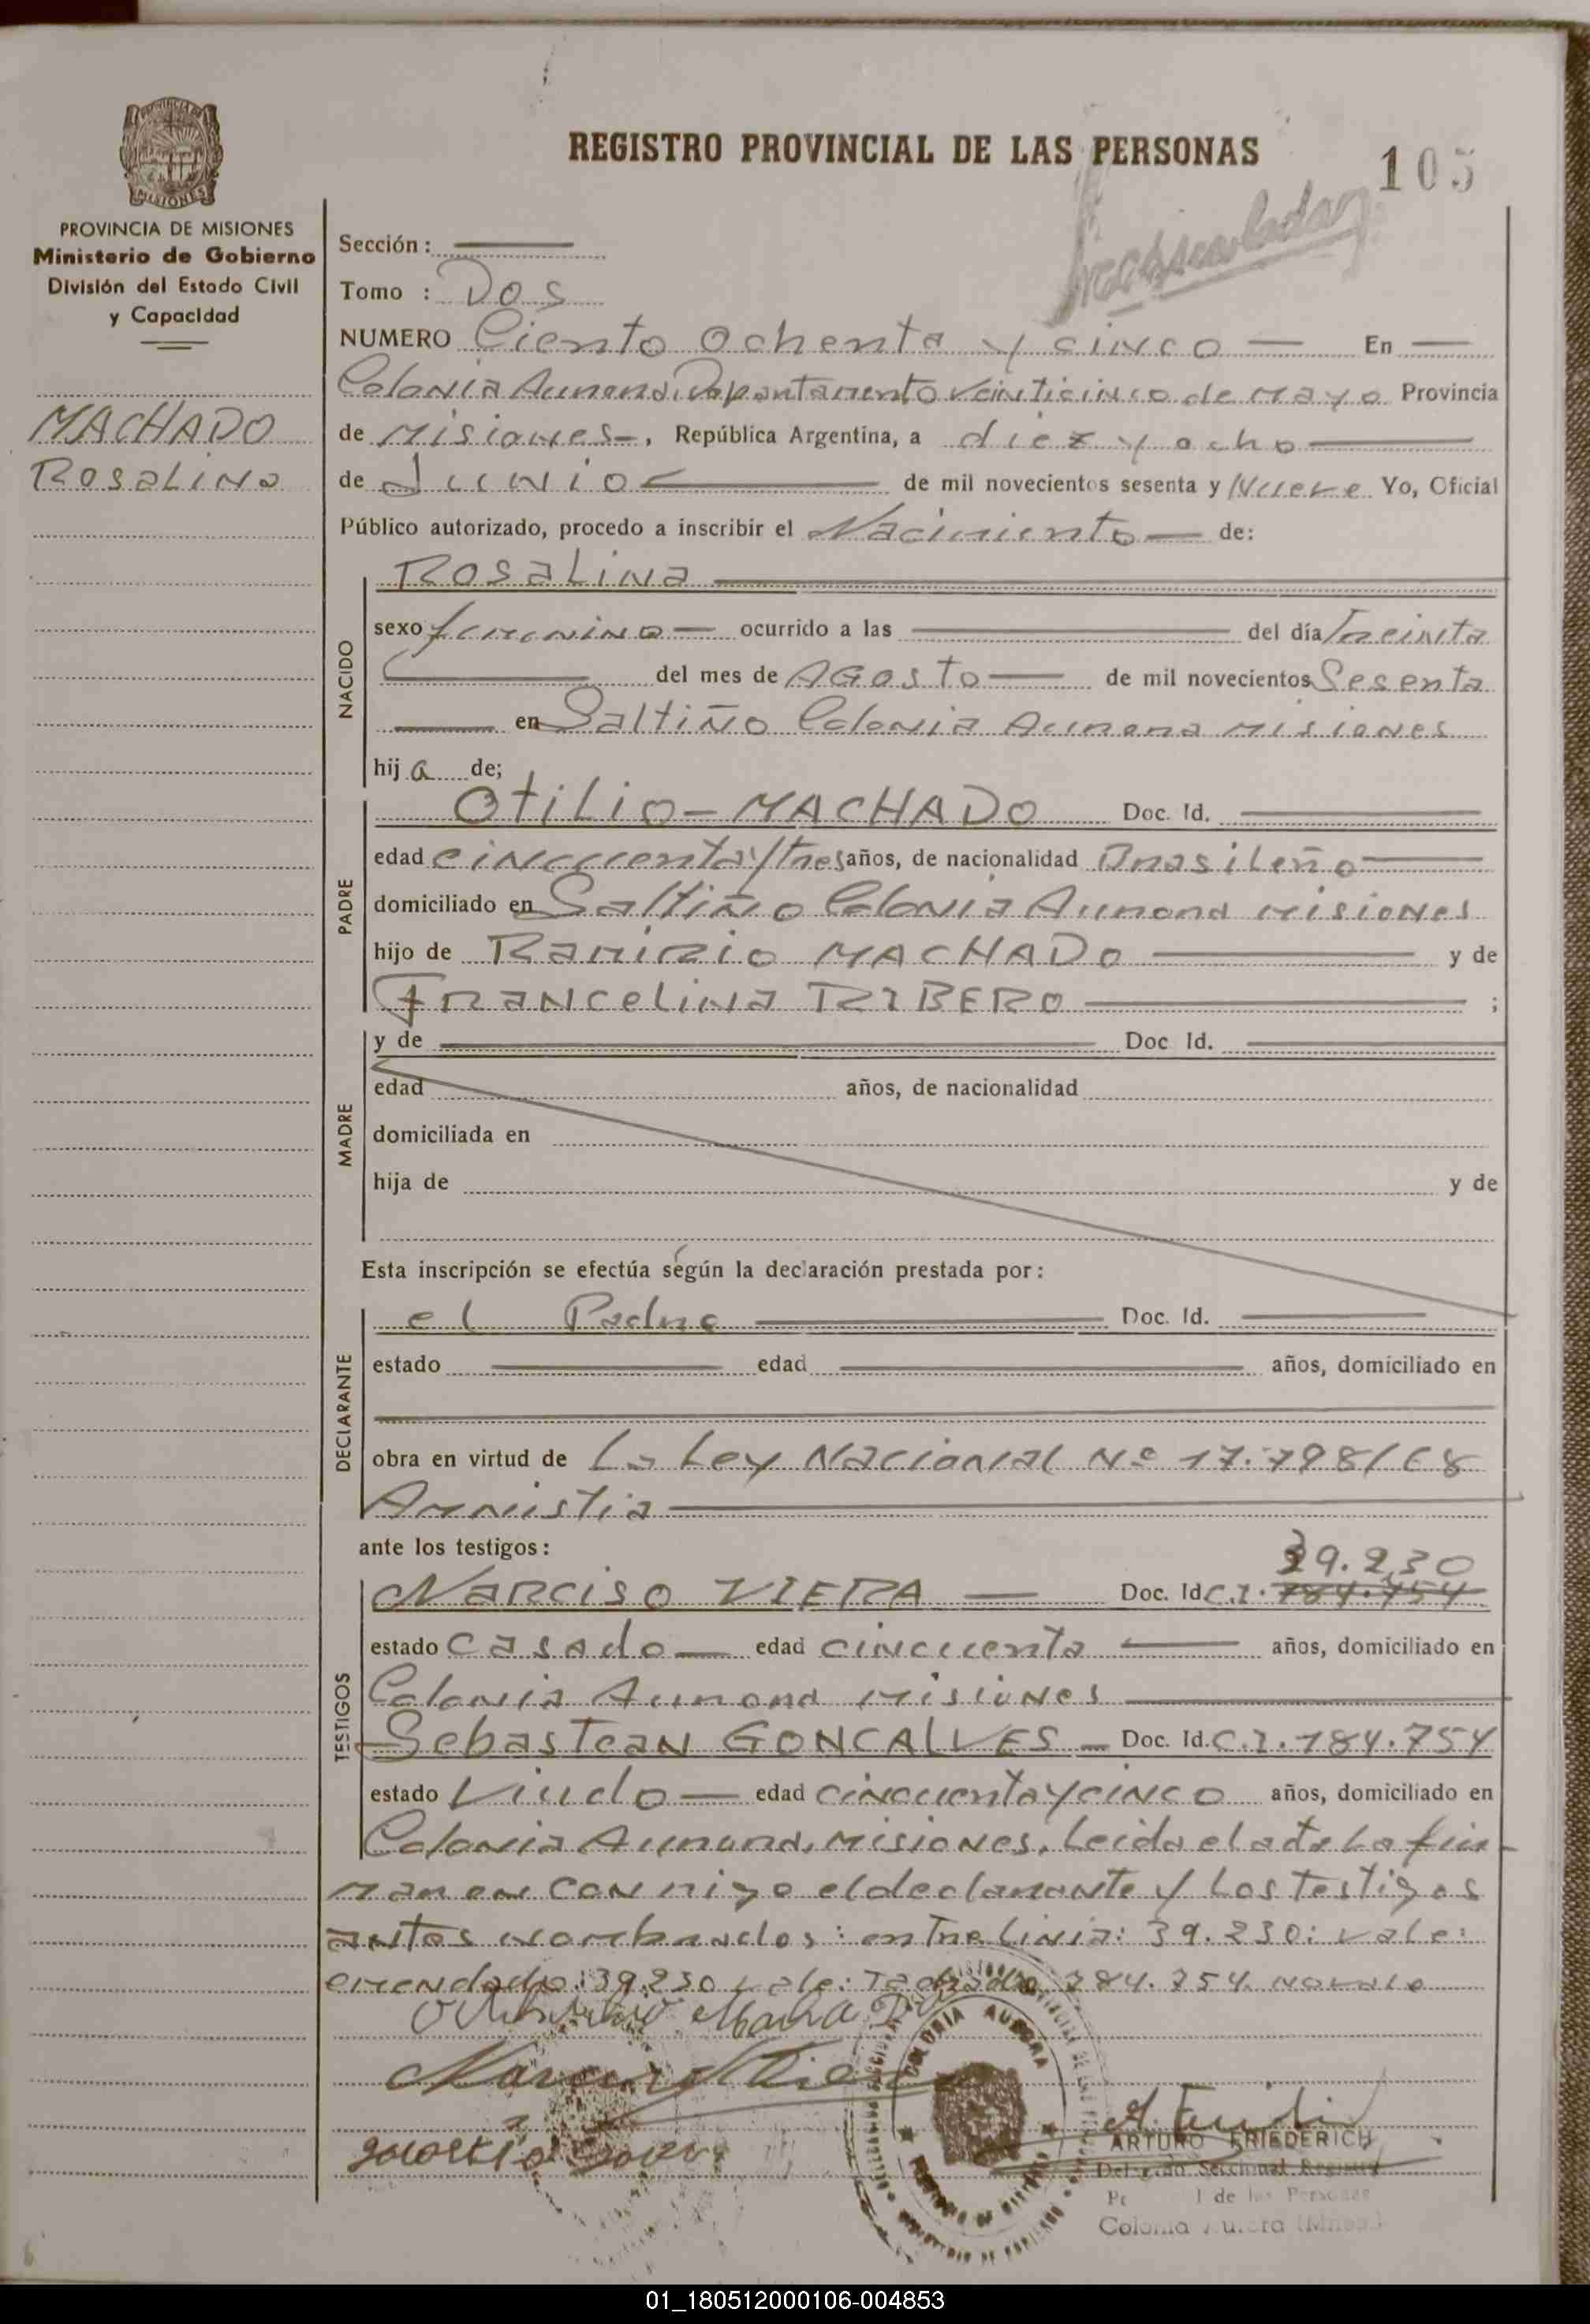 REGISTRO PROVINCIAL DE LAS PERSONAS
105
MISIONES
PROVINCIA DE MISIONES
Ministerio de Gobierno
División del Estado Civil
y Capacidad
MACHADO
Rosalina
Sección :
Tomo : Dos
NUMERO Ciento Ochenta y cinco — En —
Colonia Aurora, Departamento Veinticinco de Mayo Provincia
de Misiones-, República Argentina, a diez y ocho
de Junio de mil novecientos sesenta y Nueve Yo, Oficial
Público autorizado, procedo a inscribir el Nacimiento — de:
NACIDO
Rosalina
sexo femenino — ocurrido a las — del día Treinta
del mes de Agosto — de mil novecientos Sesenta
— en Saltiño Colonia Aurora Misiones
hija de;
PADRE
Otilio - MACHADO Doc. Id. —
edad cincuenta y tres años, de nacionalidad Brasileño
domiciliado en Saltiño Colonia Aurora Misiones
hijo de Ramirio MACHADO — y de
Francelina RIBERO — ;
MADRE
y de — Doc Id. —
edad años, de nacionalidad
domiciliada en
hija de y de
Esta inscripción se efectúa según la declaración prestada por :
DECLARANTE
el Padre — Doc. Id. —
estado — edad — años, domiciliado en
obra en virtud de La Ley Nacional Nº 17.798/68
Amnistia
ante los testigos :
39.230
TESTIGOS
Narciso VIERA — Doc. Id C.I. 784.754
estado Casado — edad cincuenta — años, domiciliado en
Colonia Aurora Misiones
Sebastean GONCALVES — Doc. Id. C.I. 184.754
estado Viudo — edad cincuenta y cinco años, domiciliado en
Colonia Aurora, Misiones. Leida el acta La fir-
man en con migo el declarante y Los Testigos
antes nombrados: entre Linia: 39.230: vale:
emendado: 39.230 vale: Tachado 784.754. no vale
COLONIA AURORA
ARTURO FRIEDERICH
Delegado Seccional Registro
de las Personas
Colonia Aurora (Mnes.)
01_180512000106-004853